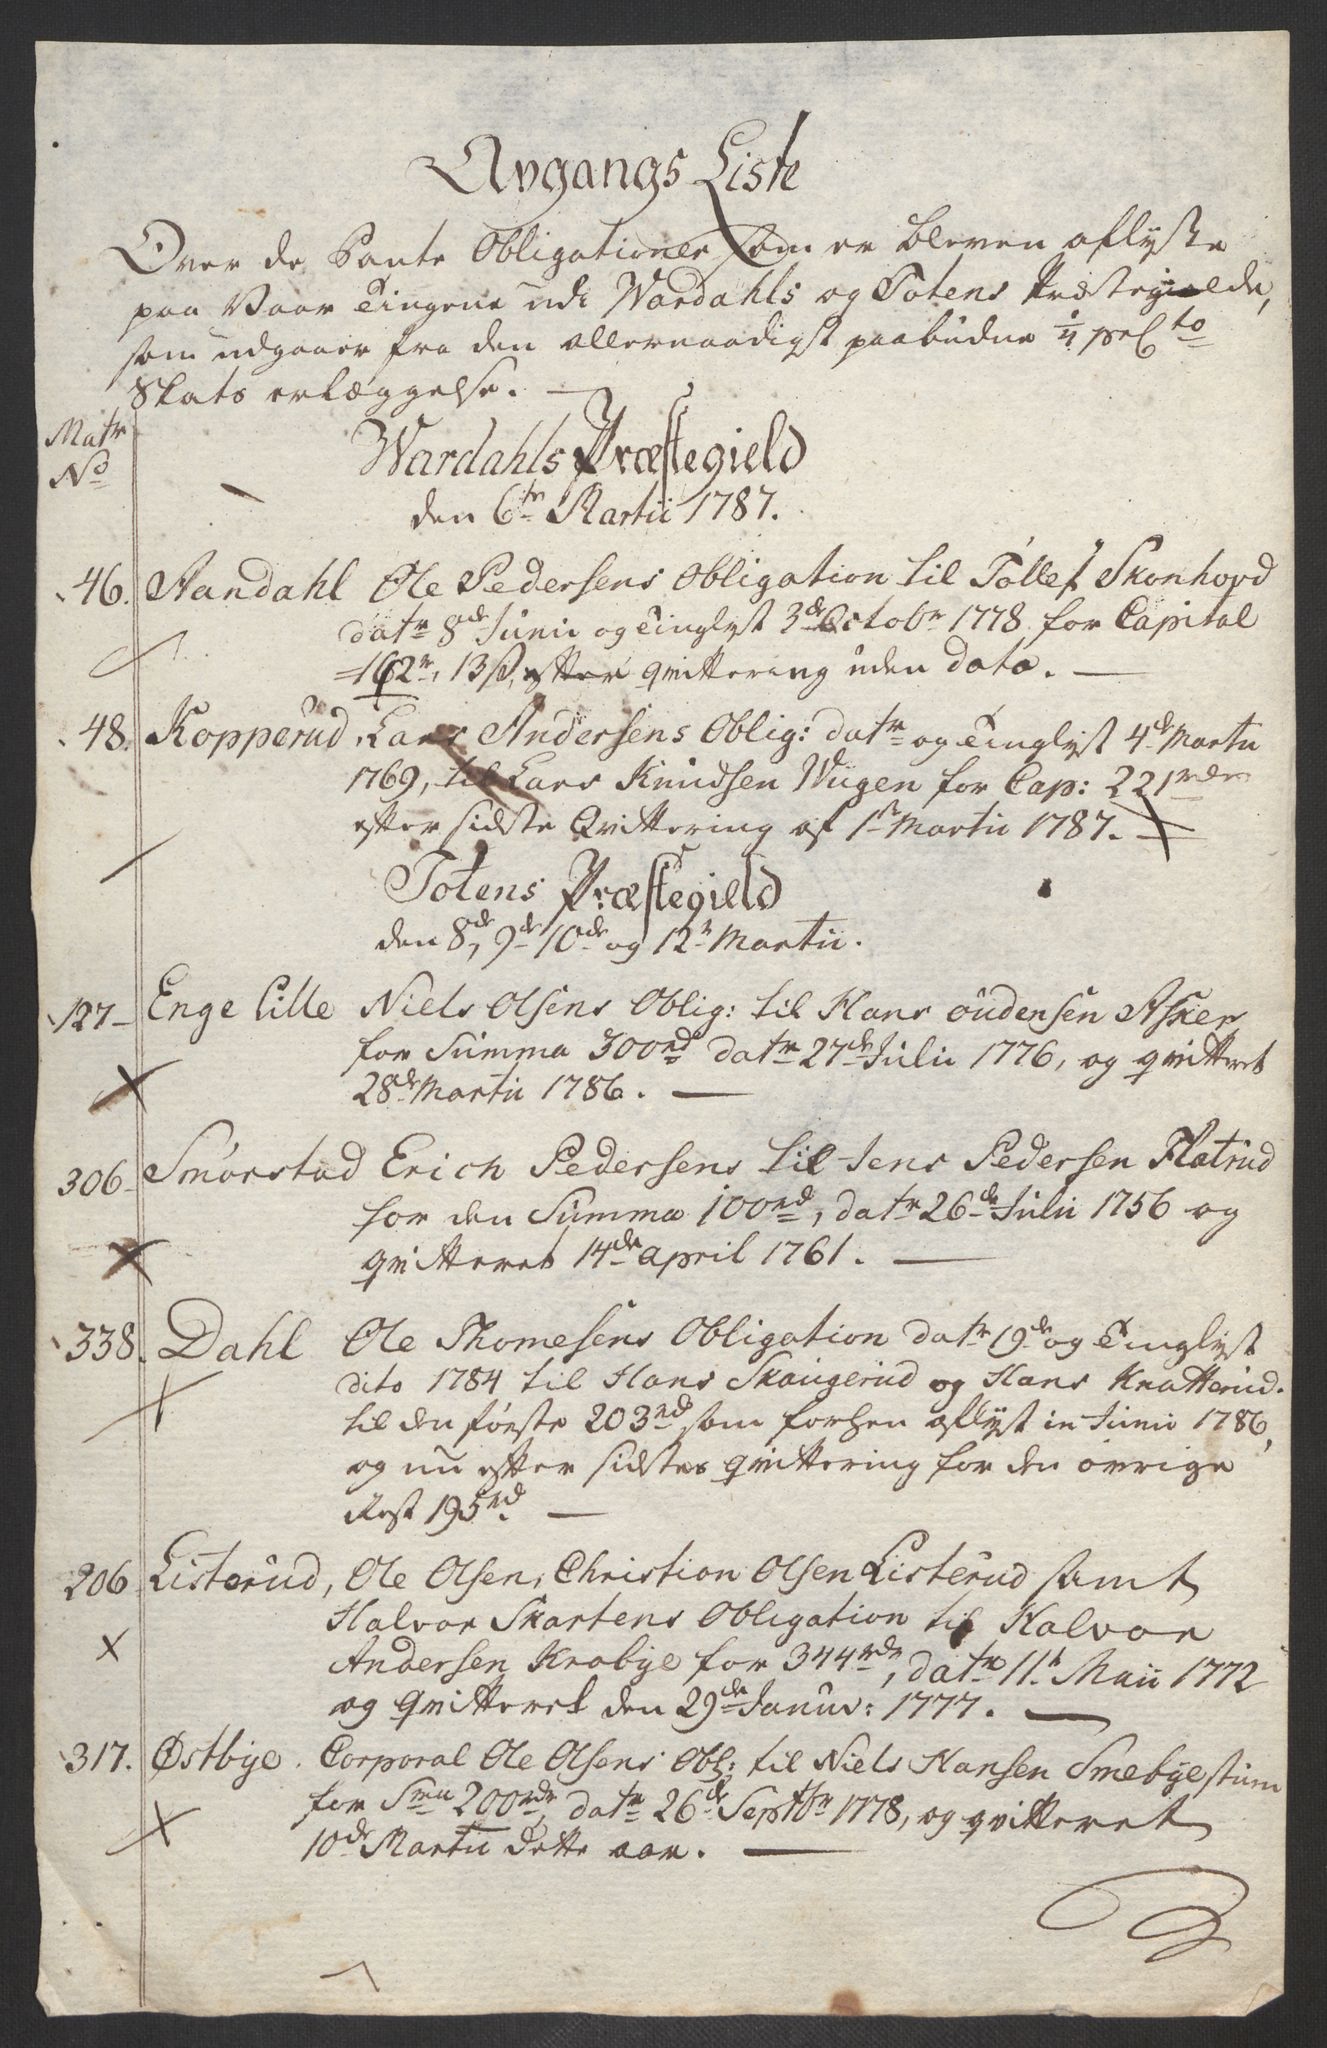 Avgangs Liste
Over de Pante Obligationer som er bleven aflyste
paa Vaar Tingene udi Wardahls og Totens Præstegielde,
som udgaaer fra den allernaadigst paabudne 1/4 prCto
Skats erlæggelse. —
Matr
No
Wardahls Præstegield
den 6te Martii 1787.
46. Aandahl Ole Pedersens Obligation til Tollef Skonhovd
datr 8de Junii og Tinglyst 3de Octobr 1778 for Capital
162 r, 13 ß, efter qvittering uden dato. —
48. Kopperud, Lars Andersens Oblig: datr og Tinglyst 4de Martii
1769, til Lars Knudsen Wugen for Cap: 221 rdr
efter sidste Qvittering af 1st Martii 1787. —
Totens Præstegield
den 8de, 9de 10de og 12te Martii.
127 – Enge lille Niels Olsens Oblig: til Hans Oudensen Asker
for Summa 300 rd datr 27de Julii 1776, og qvitteret
28de Martii 1786. —
306 – Smørstad Erich Pedersens til Jens Pedersen Flatrud
for den Summa 100 rd, datr 26de Julii 1756 og
qvitteret 14de april 1761. —
338. Dahl Ole Thomesens Obligation datr 19de og Tinglyst
dito 1784 til Hans Skougerud og Hans Knatterud.
til den første 203 rd som forhen aflyst in Junii 1786,
og nu efter sidstes qvittering for den øvrige
Rest 195 rd. —
206 Listerud, Ole Olsen, Christian Olsen Listerud samt
Halvor Skartens Obligation til Halvor
Andersen Krabye for 344 rdr, datr 11te Maii 1772
og qvitteret den 29de Janur: 1777. —
317. Østbye. Corporal Ole Olsens Obl: til Niels Hansen Smebyestuen
for Sma 200 rdr, datr 26de Septbr 1778, og qvitteret
10de Martii dette aar. —